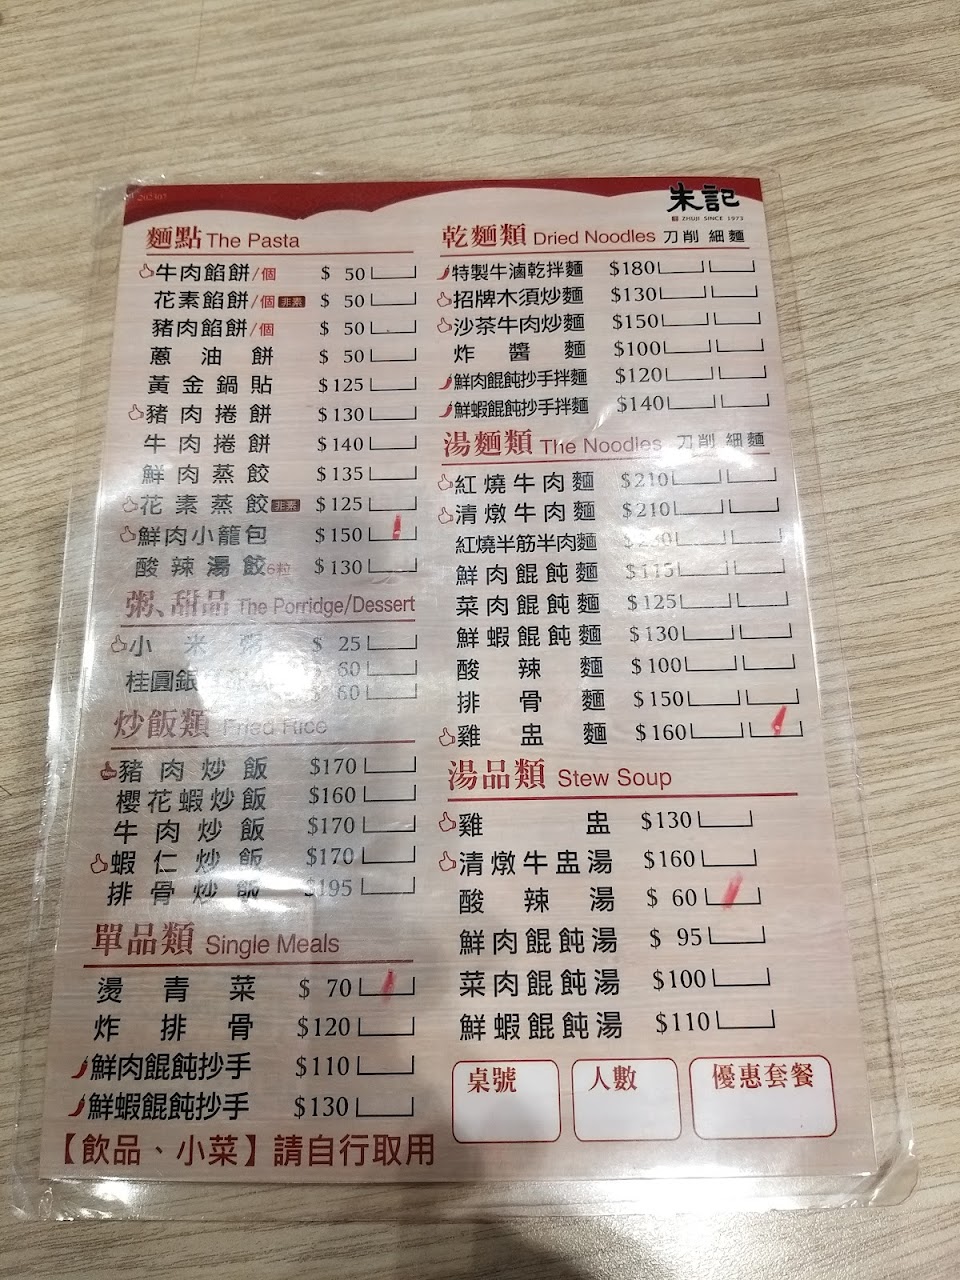 朱記
ZHUJI SINCE 1973
麵點 The Pasta
牛肉餡餅/個 $ 50
花素餡餅/個 非素 $ 50
豬肉餡餅/個 $ 50
蔥油餅 $ 50
黃金鍋貼 $125
豬肉捲餅 $130
牛肉捲餅 $140
鮮肉蒸餃 $135
花素蒸餃 非素 $125
鮮肉小籠包 $150
酸辣湯餃6粒 $130
粥、甜品 The Porridge/Dessert
小米粥 $ 25
桂圓銀 $ 60
$ 60
炒飯類 Fried Rice
豬肉炒飯 $170
櫻花蝦炒飯 $160
牛肉炒飯 $170
蝦仁炒飯 $170
排骨炒飯 $195
單品類 Single Meals
燙青菜 $ 70
炸排骨 $120
鮮肉餛飩抄手 $110
鮮蝦餛飩抄手 $130
【飲品、小菜】請自行取用
乾麵類 Dried Noodles 刀削 細麵
特製牛滷乾拌麵 $180
招牌木須炒麵 $130
沙茶牛肉炒麵 $150
炸醬麵 $100
鮮肉餛飩抄手拌麵 $120
鮮蝦餛飩抄手拌麵 $140
湯麵類 The Noodles 刀削 細麵
紅燒牛肉麵 $210
清燉牛肉麵 $210
紅燒半筋半肉麵
鮮肉餛飩麵 $115
菜肉餛飩麵 $125
鮮蝦餛飩麵 $130
酸辣麵 $100
排骨麵 $150
雞盅麵 $160
湯品類 Stew Soup
雞盅 $130
清燉牛盅湯 $160
酸辣湯 $ 60
鮮肉餛飩湯 $ 95
菜肉餛飩湯 $100
鮮蝦餛飩湯 $110
桌號
人數
優惠套餐